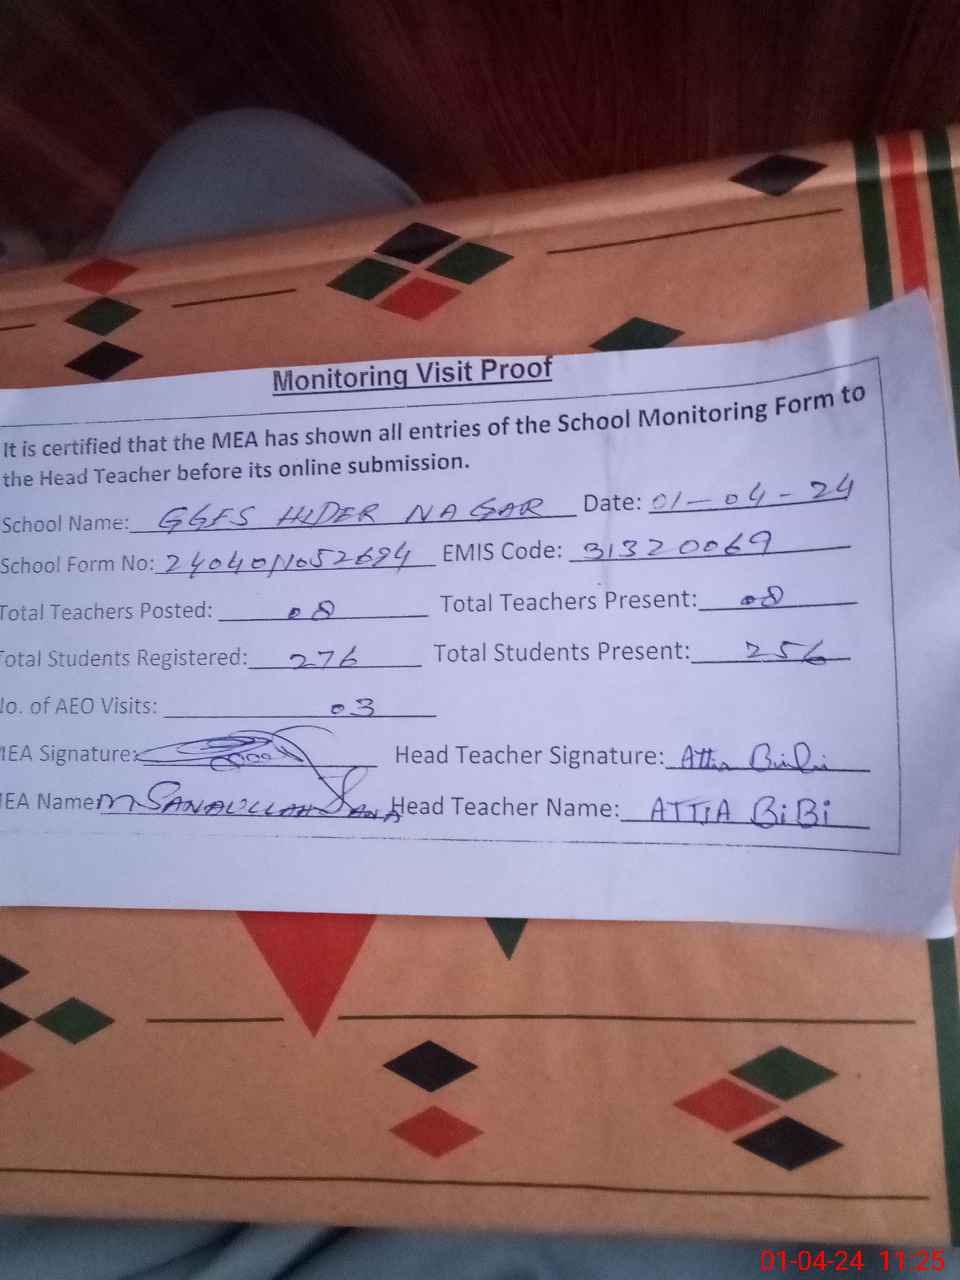 Monitoring Visit Proof
It is certified that the MEA has shown all entries of the School Monitoring Form to
the Head Teacher before its online submission.
School Name: GGES HIDER NAGAR Date: 01-04-24
School Form No: EMIS Code: 31320069
Total Teachers Posted: 08 Total Teachers Present: 08
Total Students Registered: 276 Total Students Present: 256
No. of AEO Visits: 03
MEA Signature: Head Teacher Signature: Attia Bibi
MEA Name M SANAULLAH SANA Head Teacher Name: ATTIA BiBi
01-04-24 11:25